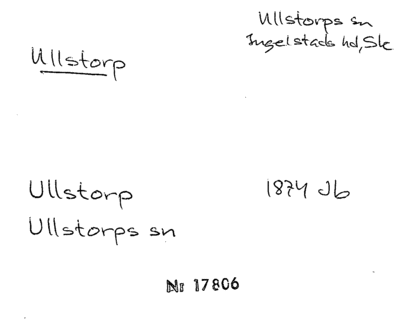 Ullstorp
Ullstorps sn
Ingelstads hd, Sk
Ullstorp
Ullstorps sn
1874 Jb
Nr 17806